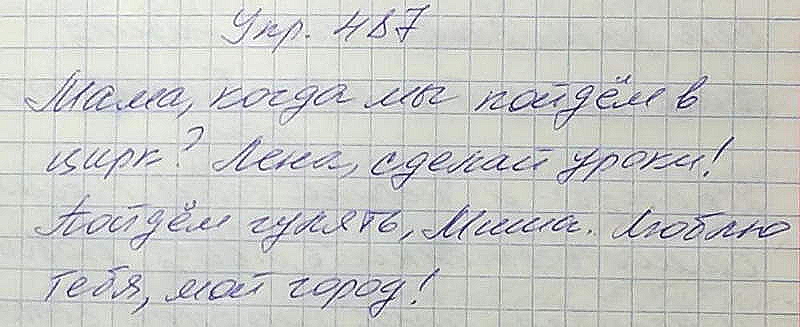 Упр. 487
Мама, когда мы пойдём в
цирк? Лена, сделай уроки!
Пойдём гулять, Миша. Люблю
тебя, мой город!